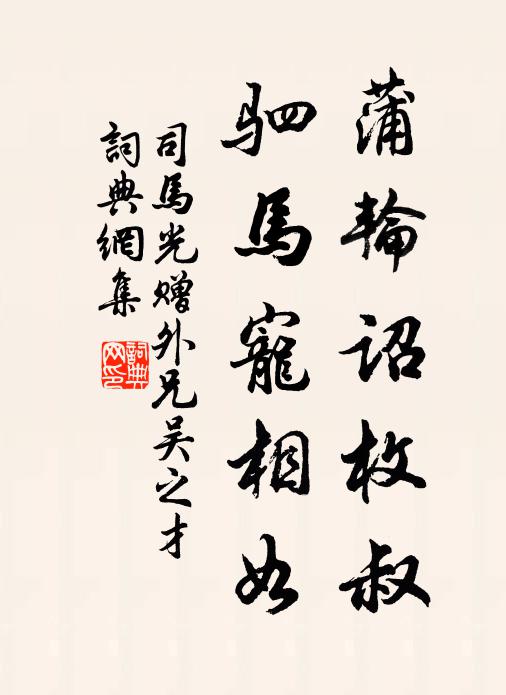 蒲輪詔枚叔
駟馬寵相如
司馬光贈外兄吴之才
詞典網集
詞典
网印